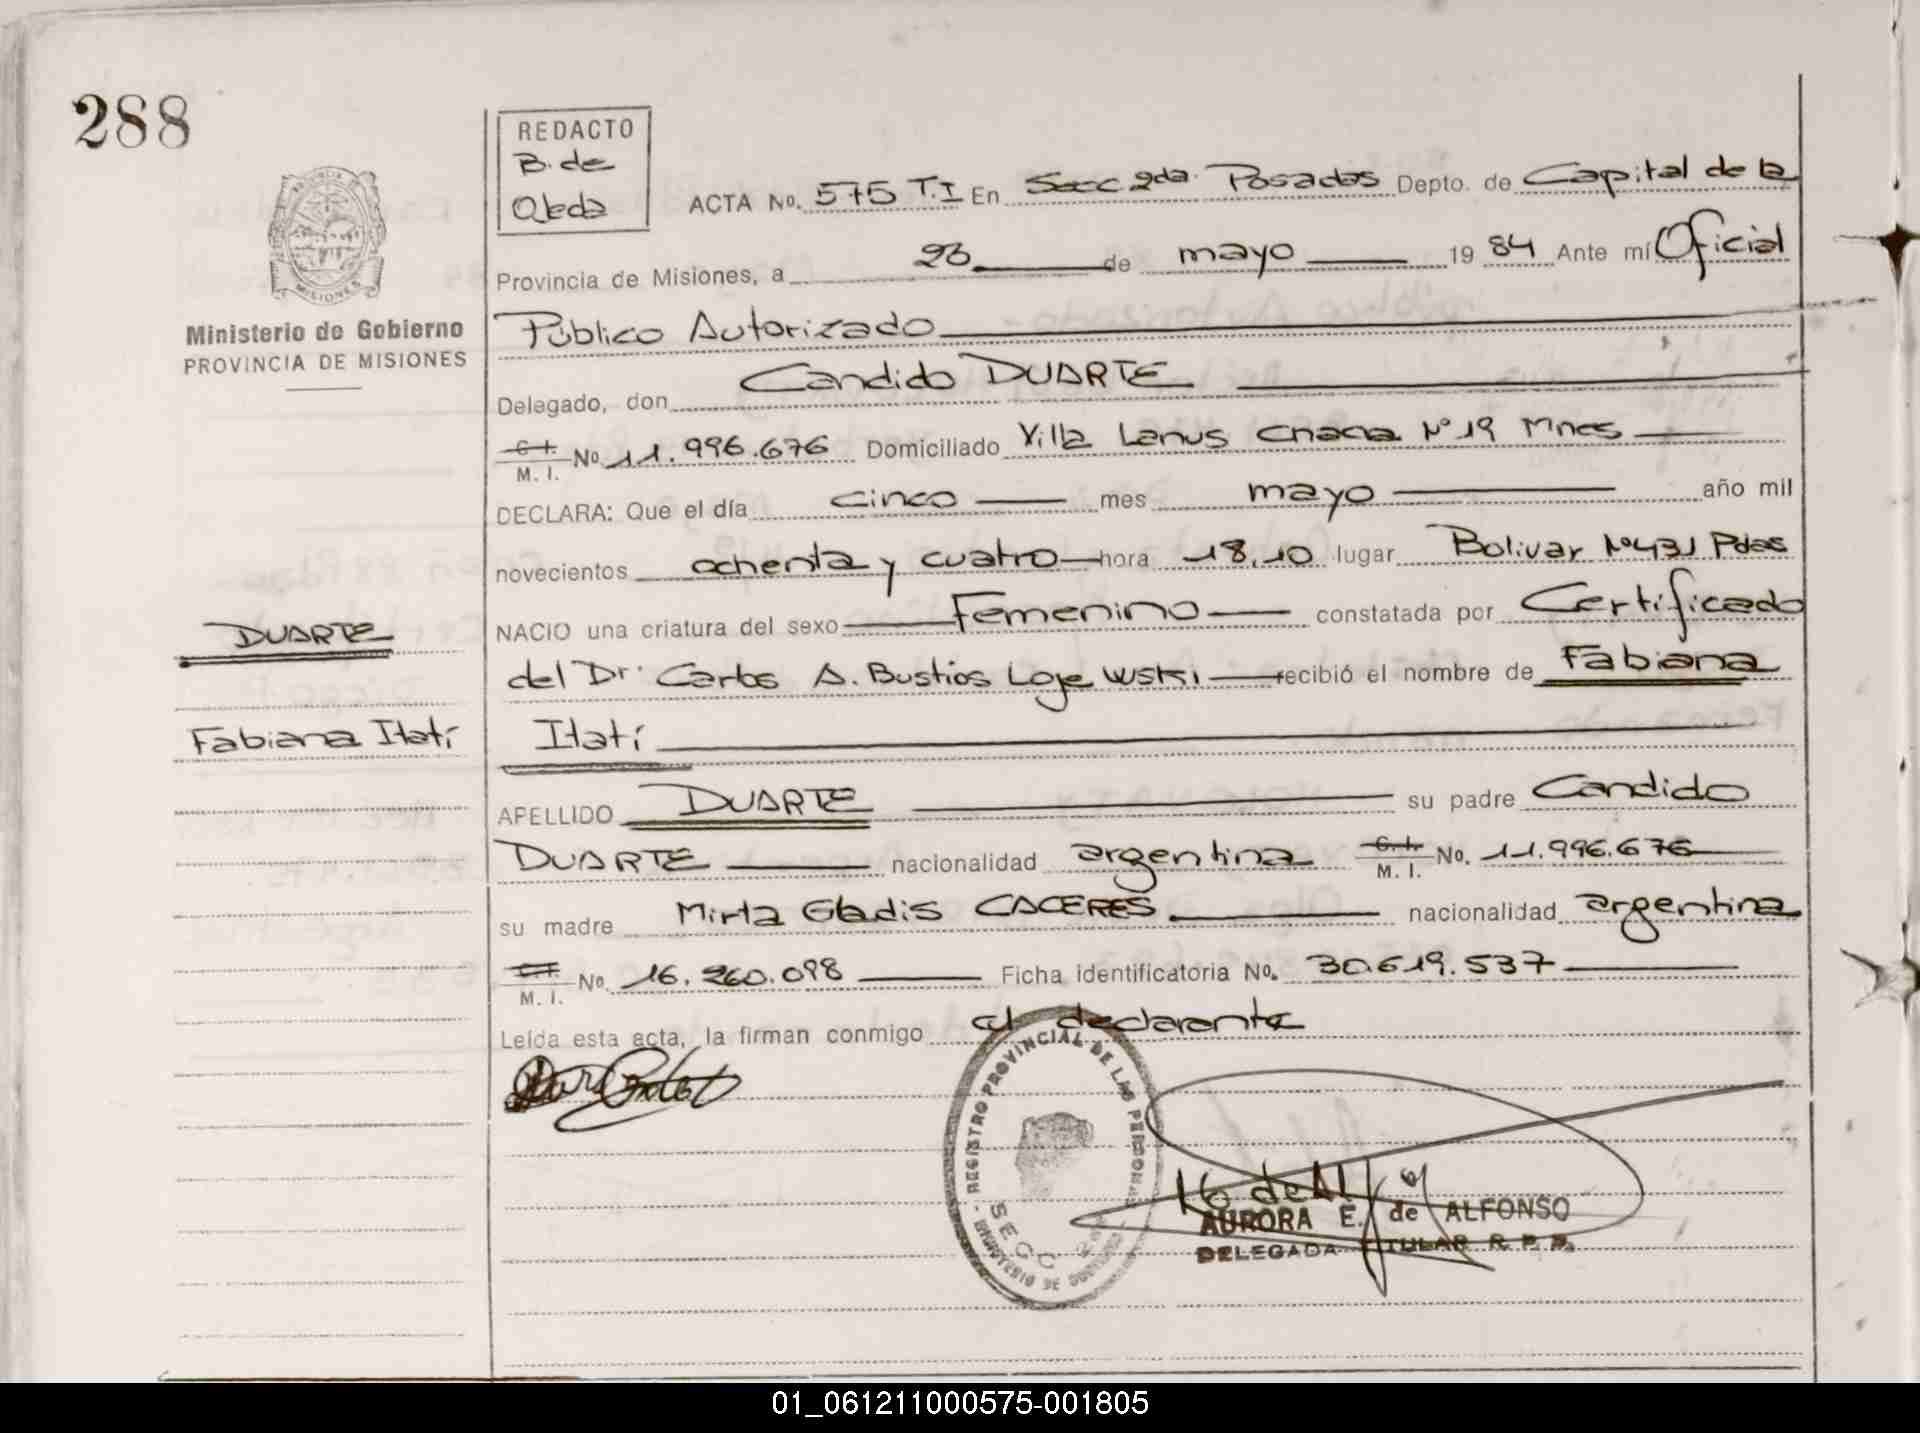 288
REDACTO
B. de
Ojeda
PROVINCIA DE
MISIONES
Ministerio de Gobierno
PROVINCIA DE MISIONES
ACTA No. 575 T.I En Secc 2da. Posadas Depto. de Capital de la
Provincia de Misiones, a 23 de mayo 19 84 Ante mí Oficial
Público Autorizado
Delegado, don Candido DUARTE
C. I.
M. I. No 11.996.676 Domiciliado Villa Lanus Chacra Nº 19 Mnes
DECLARA: Que el día cinco mes mayo año mil
novecientos ochenta y cuatro hora 18,10 lugar Bolivar Nº 431 Pdas
NACIO una criatura del sexo Femenino constatada por Certificado
del Dr. Carlos A. Bustios Lojewski recibió el nombre de Fabiana
Itatí
APELLIDO DUARTE su padre Candido
DUARTE nacionalidad argentina C. I.
M. I. No. 11.996.676
su madre Mirta Gladis CACERES nacionalidad argentina
C. I.
M. I. No. 16.260.098 Ficha identificatoria No. 30.619.537
Leída esta acta, la firman conmigo el declarante
DUARTE
Fabiana Itatí
REGISTRO PROVINCIAL DE LAS PERSONAS
SECC 2da
MINISTERIO DE GOBIERNO
AURORA E. de ALFONSO
DELEGADA TITULAR R. P. P.
01_061211000575-001805